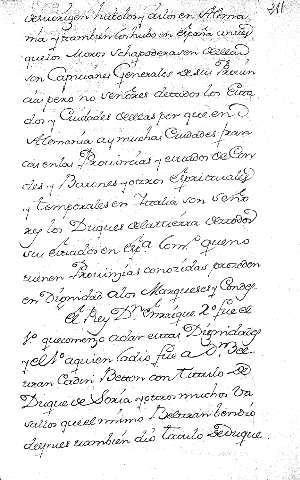 311
de su origen
ma y tambien los hubo en españa antes
que los Moros se apoderasen de ella
son Capitanes Generales de sus Provin
cias pero no señores de todos los esta
dos y Ciudades de ellas por que en
Alemania ay muchas Ciudades fran
cas en las Provincias y estados de Con
des y Barones y otros Espirituales
y temporales en Italia son seño
res los Duques de la tierra de todos
sus estados en esta Com. que no
tienen Provincias conocidas preceden
en Dignidad a los Marqueses y Condes
el Rey Dn. Enrique 2º fue el
1º que comenzo a dar estas Dignidades
y el 1º a quien la dio fue a Dn. Bel
tran Claquin Breton con titulo de
Duque de Soria y otros muchos Va
sallos que el mismo Beltran vendio
despues tambien dio titulo de Duque